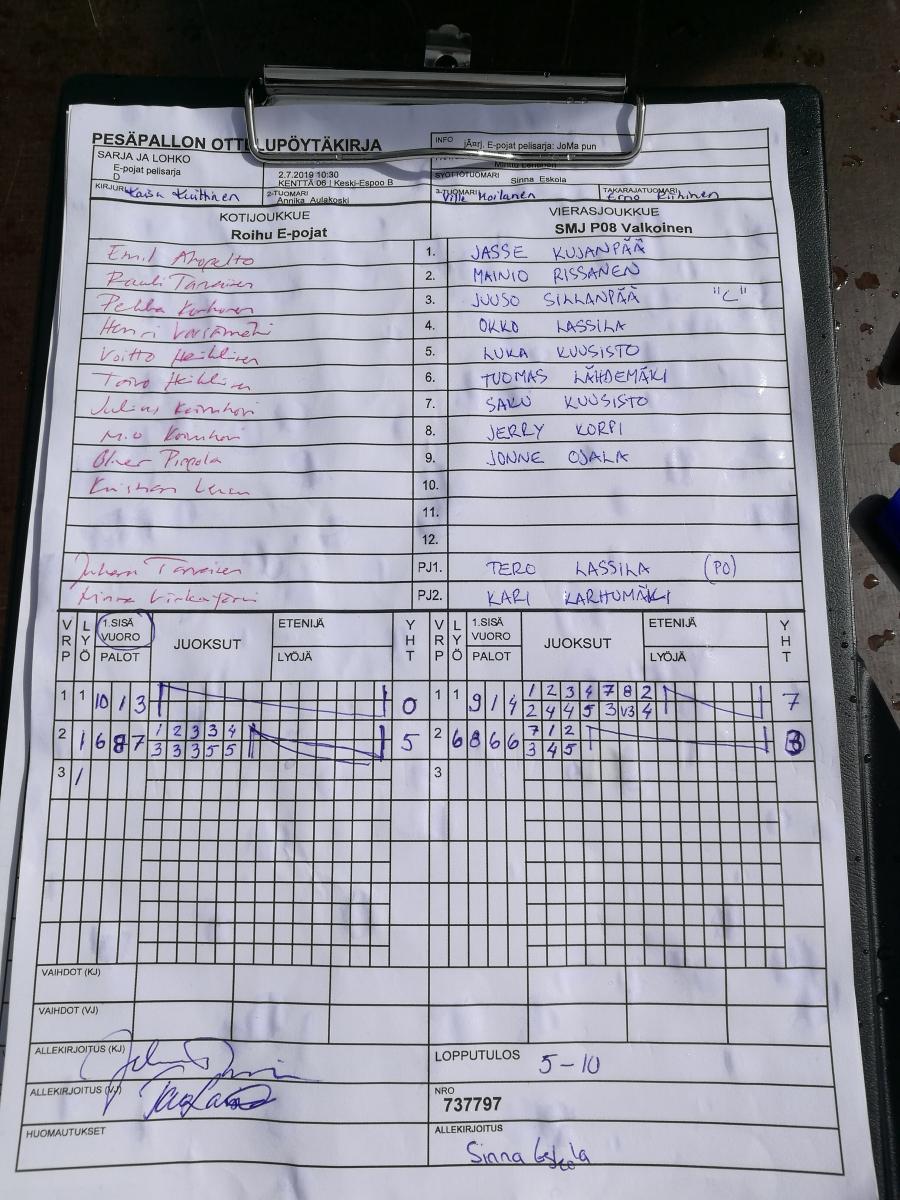 PESÄPALLON OTTELUPÖYTÄKIRJA
INFO jÄarj. E-pojat pelisarja: JoMa pun
SARJA JA LOHKO
E-pojat pelisarja
D
2.7.2019 10:30
KENTTÄ 06 | Keski-Espoo B
SYÖTTÖTUOMARI
Sinna Eskola
KIRJURI
2-TUOMARI
Annika Aulakoski
3-TUOMARI Ville Moilanen
TAKARAJATUOMARI
KOTIJOUKKUE
Roihu E-pojat
VIERASJOUKKUE
SMJ P08 Valkoinen
1. JASSE KUJANPÄÄ
2. MAINIO RISSANEN
Pekka 3. JUUSO SILLANPÄÄ "C"
Henri 4. OKKO LASSILA
Voitto Heikkinen 5. LUKA KUUSISTO
Toivo Heikkinen 6. TUOMAS LÄHDEMÄKI
Julius Koivuhovi 7. SAKU KUUSISTO
Koivuhovi 8. JERRY KORPI
Oliver Pippola 9. JONNE OJALA
10.
11.
12.
PJ1. TERO LASSILA (PO)
PJ2. KARI KARHUMÄKI
VRP LYÖ 1.SISÄ VUORO PALOT JUOKSUT ETENIJÄ LYÖJÄ YHT VRP LYÖ 1.SISÄ VUORO PALOT JUOKSUT ETENIJÄ LYÖJÄ YHT
1 1 10 1 3 0 1 1 9 1 4 1 2 3 4 7 8 2 7
2 4 4 5 3 V3 4
2 1 6 8 7 1 2 3 3 4 5 2 6 8 6 6 7 1 2 3
3 3 3 5 5 3 4 5
3 1 3
VAIHDOT (KJ)
VAIHDOT (VJ)
ALLEKIRJOITUS (KJ)
LOPPUTULOS 5-10
ALLEKIRJOITUS (VJ)
NRO
737797
HUOMAUTUKSET
ALLEKIRJOITUS
Sinna Eskola